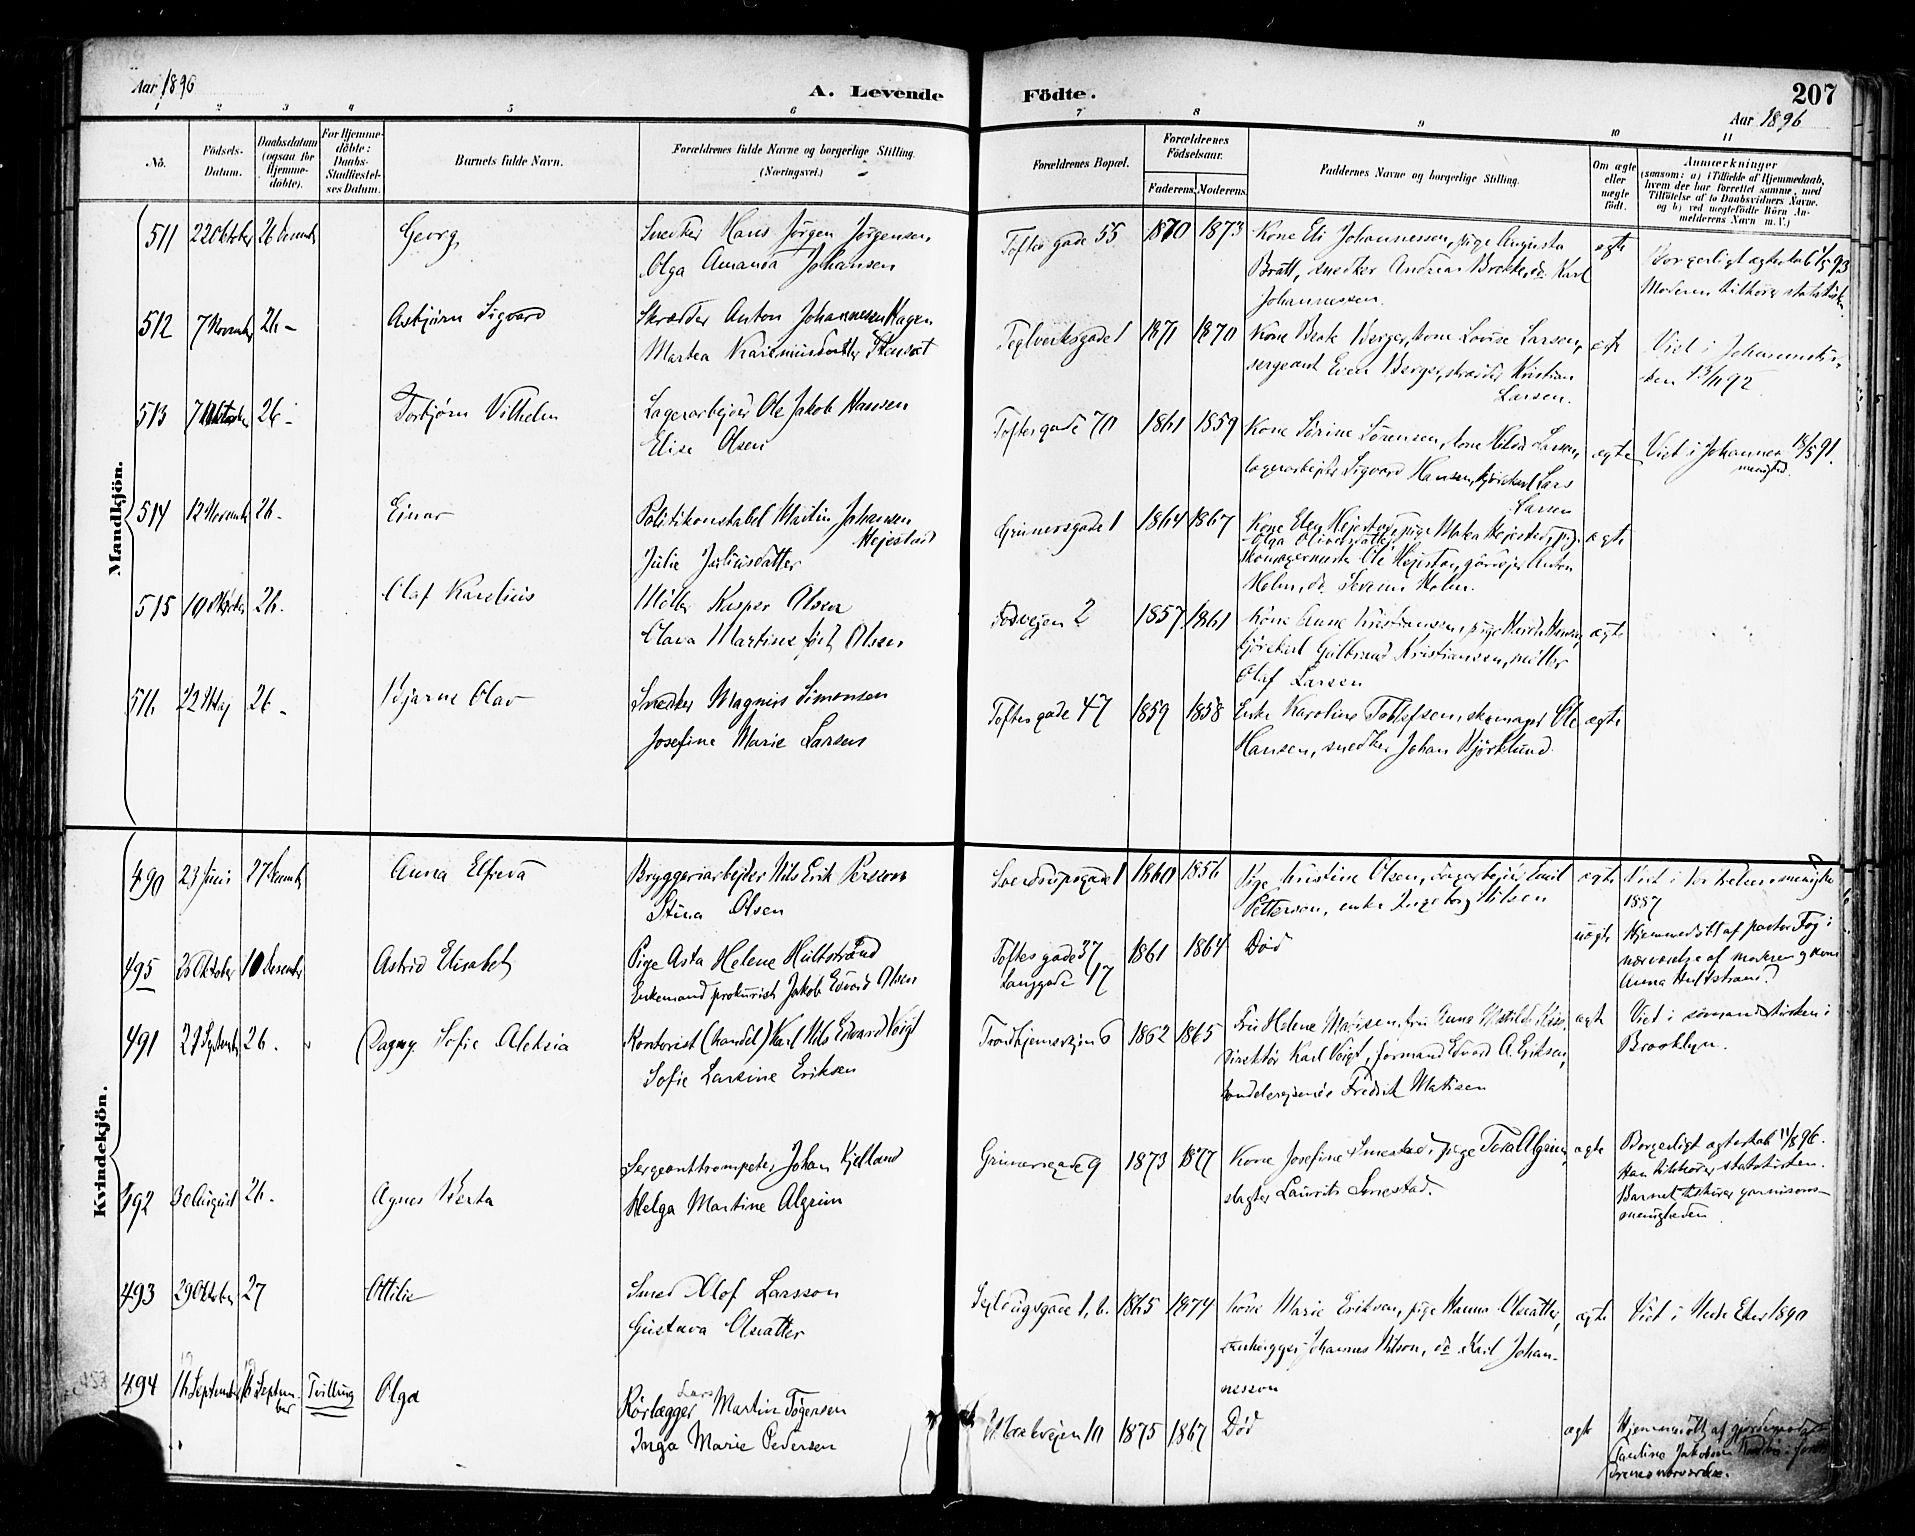 Aar 1896
A. Levende Födte.
207
Aar 1896
1 2 3 4 5 6 7 8 9 10 11
No.
Födsels-Datum.
Daabsdatum (ogsaa for Hjemme-döbte).
For Hjemme-döbte: Daabs-Stadfæstel-ses Datum.
Barnets fulde Navn.
Forældrenes fulde Navne og borgerlige Stilling.
(Næringsvei.)
Forældrenes Bopæl.
Forældrenes Födselsaar.
Faderens. Moderens.
Faddernes Navne og borgerlige Stilling.
Om ægte eller uægte födt.
Anmærkninger
(saasom: a) i Tilfælde af Hjemmedaab, hvem der har forrettet samme, med Tilföielse af to Daabsvidners Navne, og b) ved uegtefödte Börn An-melderens Navn m. V.)
Mandkjön.
511 22 Oktober 26
Georg
Snedker Hans Jörgen Jörgensen,
Olga Amanda Johansen
Toftesgade 55 1870 1873
Kone Eli Johannessen, pige Augusta
Bratt, snedker Andreas Karl
Johannessen.
ægte
Borgerligt ægteskab 93
Moderen tilhører statskirk.
512 7 November 26 -
Asbjörn Sigvard
Skrædder Anton Johannesen Hagen
Martea
Teglverksgade 1 1871 1870
Kone Berger, kone Lovise Larsen,
sergeant Even Berger, skrædder Kristian
Larsen.
ægte
Viet i Johanneskir-
ken 13/11 92
513 7 26 -
Torbjörn Vilhelm
Lagerarbejder Ole Jakob Hansen
Elise Olsen
Toftesgade 70 1861 1859
Kone Sörine Sörensen, kone Hilda Larsen,
lagerarbejder Sigvard Hansen, Lars
Larsen
ægte
Viet i Johannes 18/5 91.
menighed
514 12 November 26 -
Einar
Politikonstabel Martin Johansen
Hejestad
Julie Juliusdatter
Grünersgade 1 1864 1867
Kone Elen Hejestad, pige Hejestad, pige
Olga Oliversdatter
skomagermester Ole Hejestad, Anton
Holm, do Severin Holm.
ægte
515 10 Oktober 26.
Olaf Karelius
Möller Kasper Olsen
Olava Martine föd Olsen
Fosvejen 2 1857 1861
Kone Anne Kristiansen, pige Hansen,
Gulbrand Kristiansen, möller
Olaf Larsen
ægte
516 22 Maj 26 -
Bjarne Olav
Snedker Magnus Simonsen
Josefine Marie Larsen
Toftesgade 47 1859 1858
Enke Karoline Tollefsen, skomager Ole
Hansen, snedker Johan Björklund.
ægte
Kvindekjön.
490 23 Juni 27
Anna Elfreda
Bryggeriarbejder Nils Erik Persson
Stina Olsen
Sverdrupsgade 1 1860 1856
Pige Kristine Olsen, Emil
Petterson, enke Ingeborg Nilsen
ægte
Viet i
1887
495 25 Oktober 10 Desember
Astrid Elisabet
Pige Asta Helene Hultstrand
Enkemand prokurist Jakob Edvard Olsen
Toftesgade 37
Langgade 17
1861 1864
Död
uægte
Hjemmedöbt af pastor Fog i
nærværelse af moderen og kone
Anna Hultstrand.
491 27 September 26.
Dagny Sofie Aleksia
Kontorist (handel) Karl Nils Edvard Voigt
Sofie Larsine Eriksen
Trondhjemsvejen 6 1862 1865
Fru Helene Matisen, fru Anna Matilde
direktör Karl Voigt, formand Edvard A. Eriksen,
handelsrejsende Fredrik Matisen
ægte
Viet i sömandskirken i
Brooklyn.
492 30 August 26.
Agnes Berta
Sergeanttrompeter Johan Kjelland
Helga Martine Algrim
Grünersgade 9 1873 1877
Kone Josefine Smestad, pige Tora Algrim,
slagter Laurits Smestad.
ægte
Borgerligt ægteskab 11/8 96.
Han tilhörer statskirken.
Barnet tilhörer garnisons-
menigheden
493 29 Oktober 27
Ottilie
Smed Olof Larsson
Gustava Olsdatter
1, b. 1865 1874
Kone Marie Eriksen, pige Hanna Olsdatter,
stenhugger Johannes Nilson, do Karl Johan-
nesson
ægte
Viet i Nedre Eker 1890
494 16 September 16 Septem-
ber
Tvilling
Olga
Lars
Rörlægger Martin Jörgensen
Inga Marie Pedersen
10 1875 1867
Död
ægte
Hjemmedöbt af gjordemoder
Jakobsen
nærværelse.